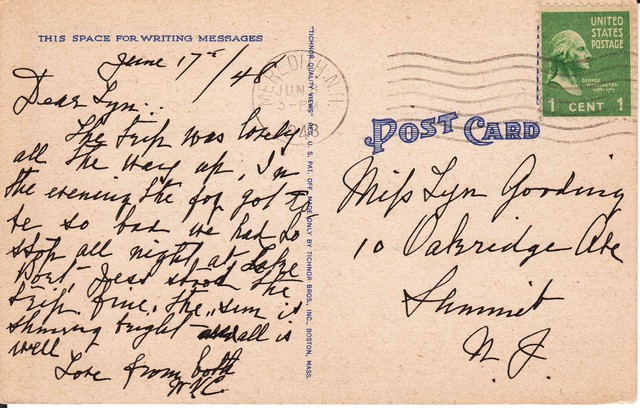 THIS SPACE FOR WRITING MESSAGES
June 17th/48
Dear Lyn..
The trip was lovely
all the way up, In
the evening the fog got to
be so bad we had to
stop all night at Lake
Port, Jess stood the
trip fine. The sun is
shining bright and all is
well
Love from both
W.C.
"TICHNOR QUALITY VIEWS" REG. U. S. PAT. OFF. MADE ONLY BY TICHNOR BROS. INC., BOSTON, MASS.
MEREDITH, N.H.
JUN
3-P
48
UNITED
STATES
POSTAGE
GEORGE
WASHINGTON
1 CENT 1
POST CARD
Miss Lyn Gooding
10 Oakridge Ave
Summit
N. J.